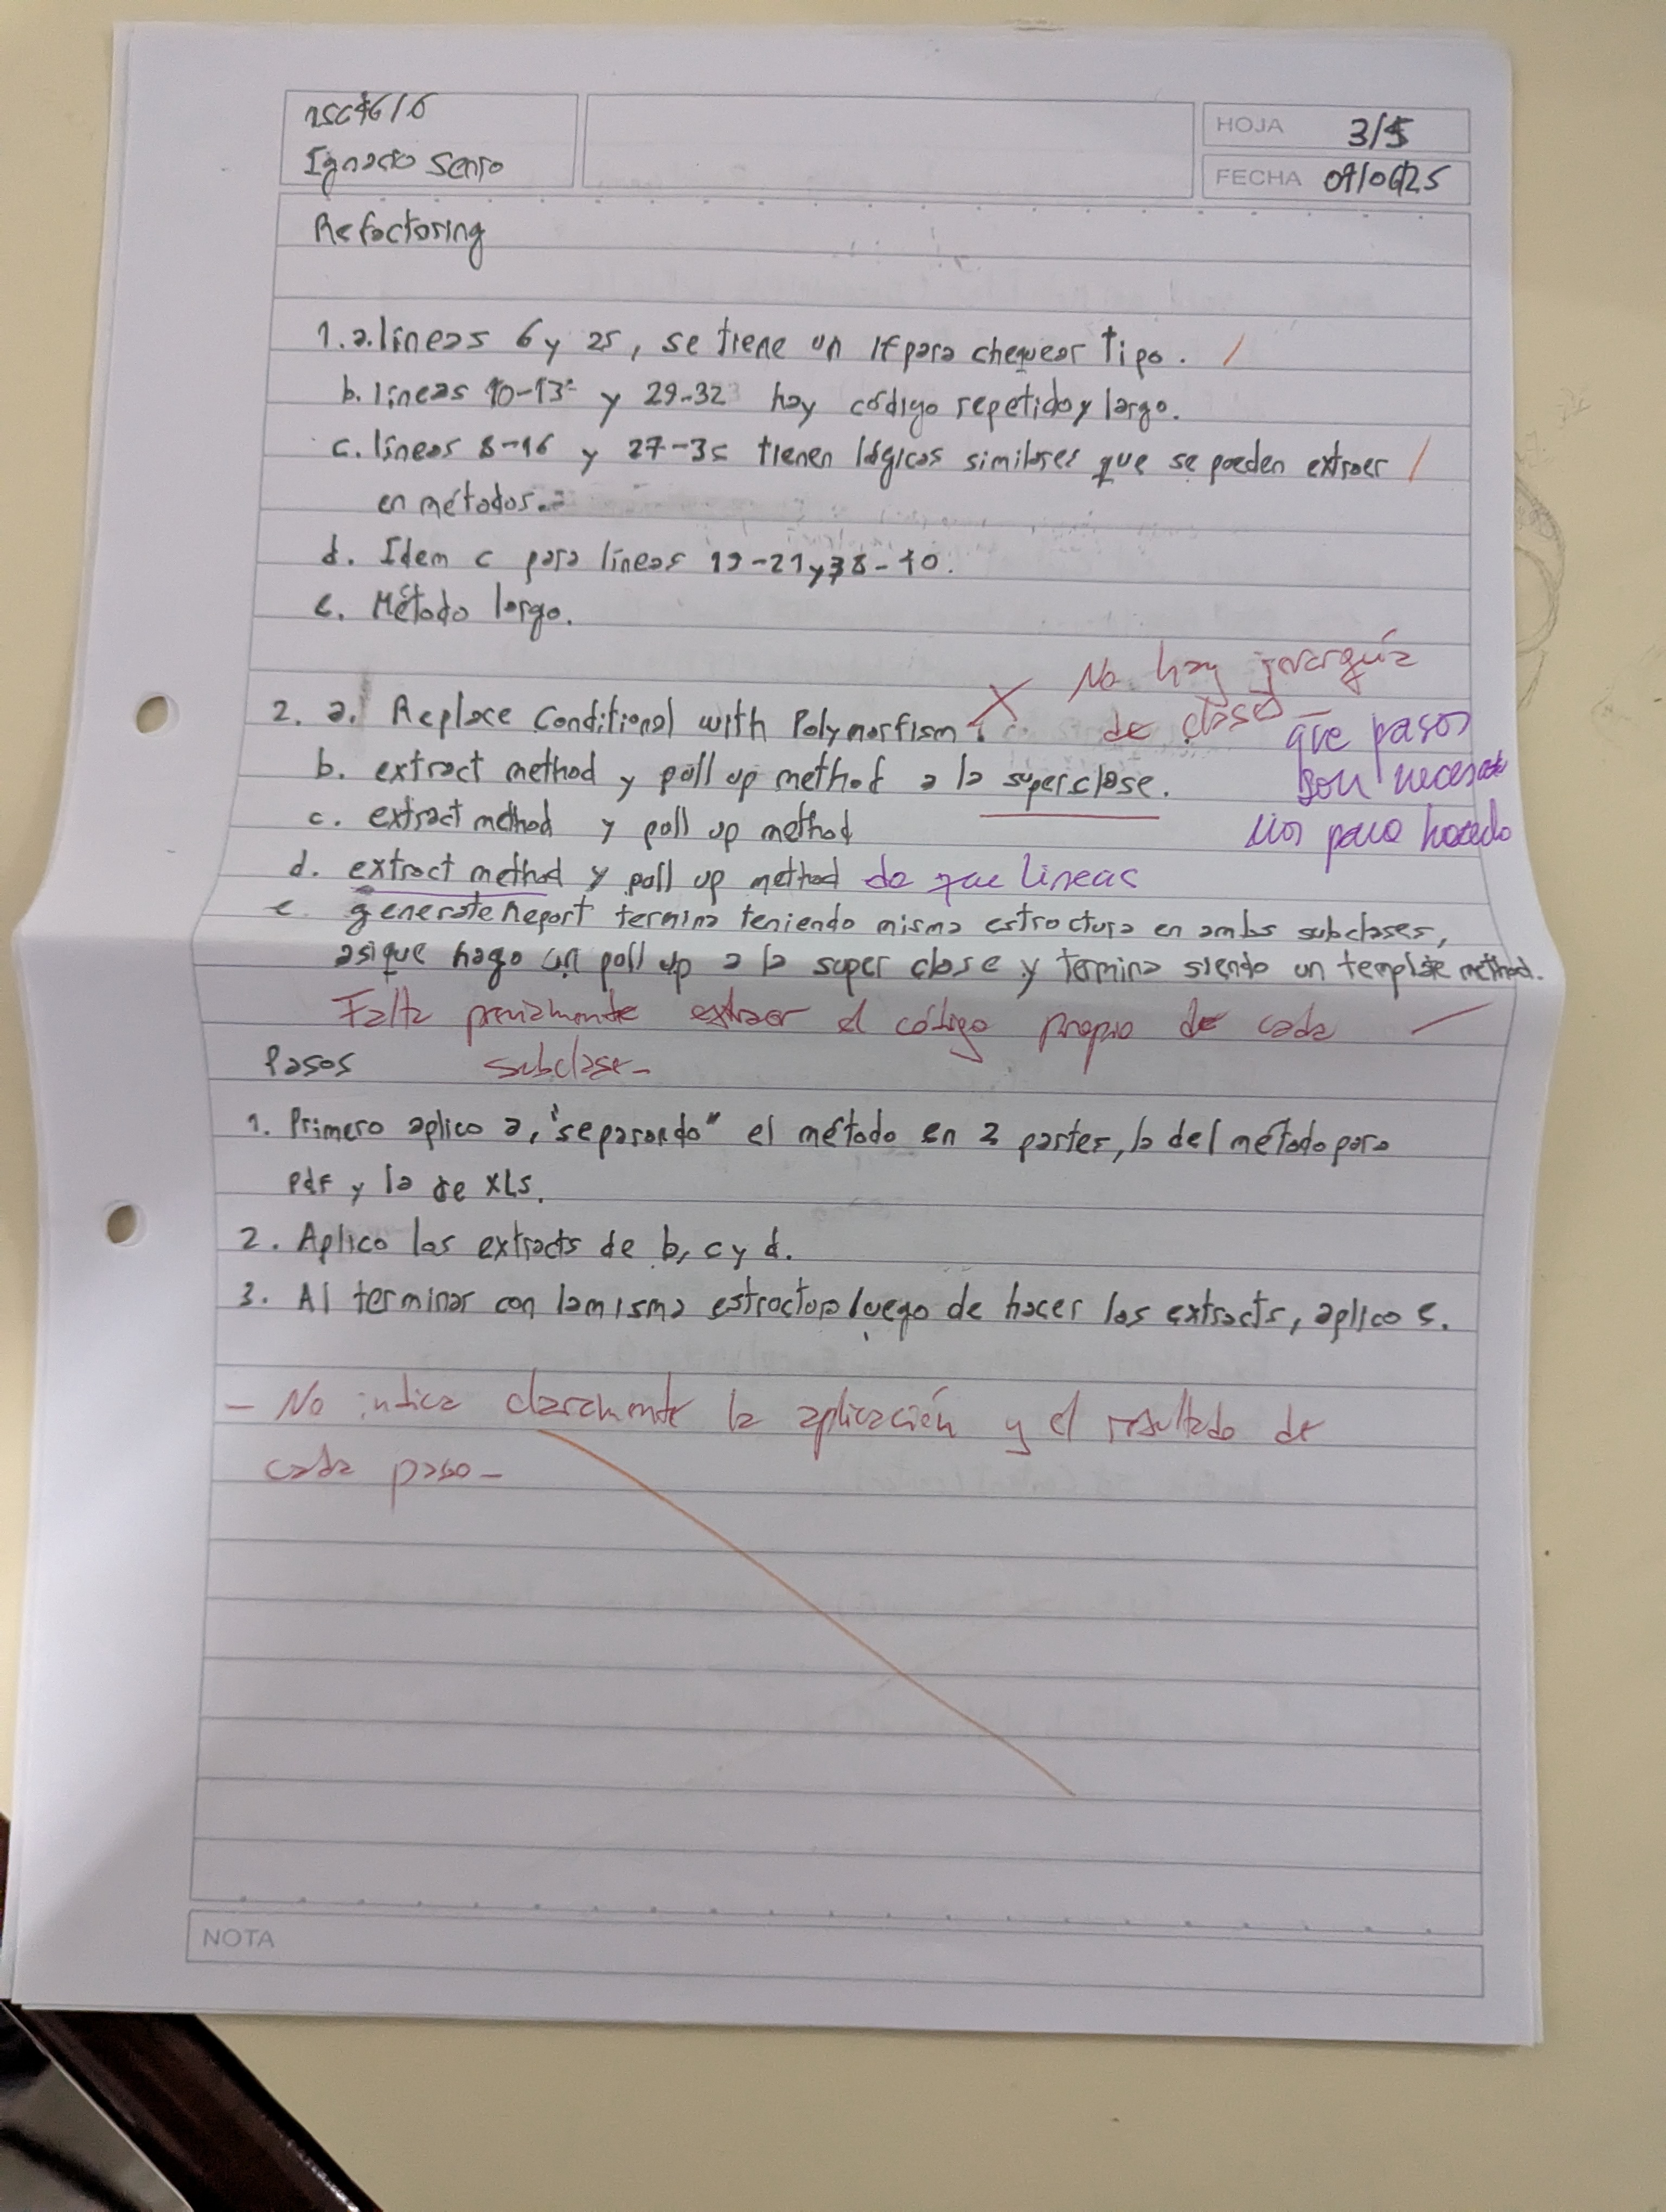 Ignacio Senso
HOJA 3/5
FECHA 07/06/25
Refactoring
1. a. líneas 6 y 25, se tiene un if para chequear tipo.
b. líneas 10-13 y 29-32 hay código repetido y largo.
c. líneas 8-16 y 27-35 tienen lógicas similares que se pueden extraer
en métodos.
d. Idem c para líneas 19-21 y 38-40.
e. Método largo.
No hay jerarquía
de clases
2. a. Replace Conditional with Polymorfism.
que pasos
son necesa
rios para hacerlo
b. extract method y pull up method a la superclase.
c. extract method y pull up method
d. extract method y pull up method de que lineas
e. generateReport termina teniendo misma estructura en ambas subclases,
asique hago un pull up a la super clase y termina siendo un template method.
Falta previamente extraer el código propio de cada
subclase-
Pasos
1. Primero aplico a, "separando" el método en 2 partes, la del método para
pdf y la de XLS.
2. Aplico los extracts de b, c y d.
3. Al terminar con la misma estructura luego de hacer los extracts, aplico e.
- No indica claramente la aplicación y el resultado de
cada paso-
NOTA